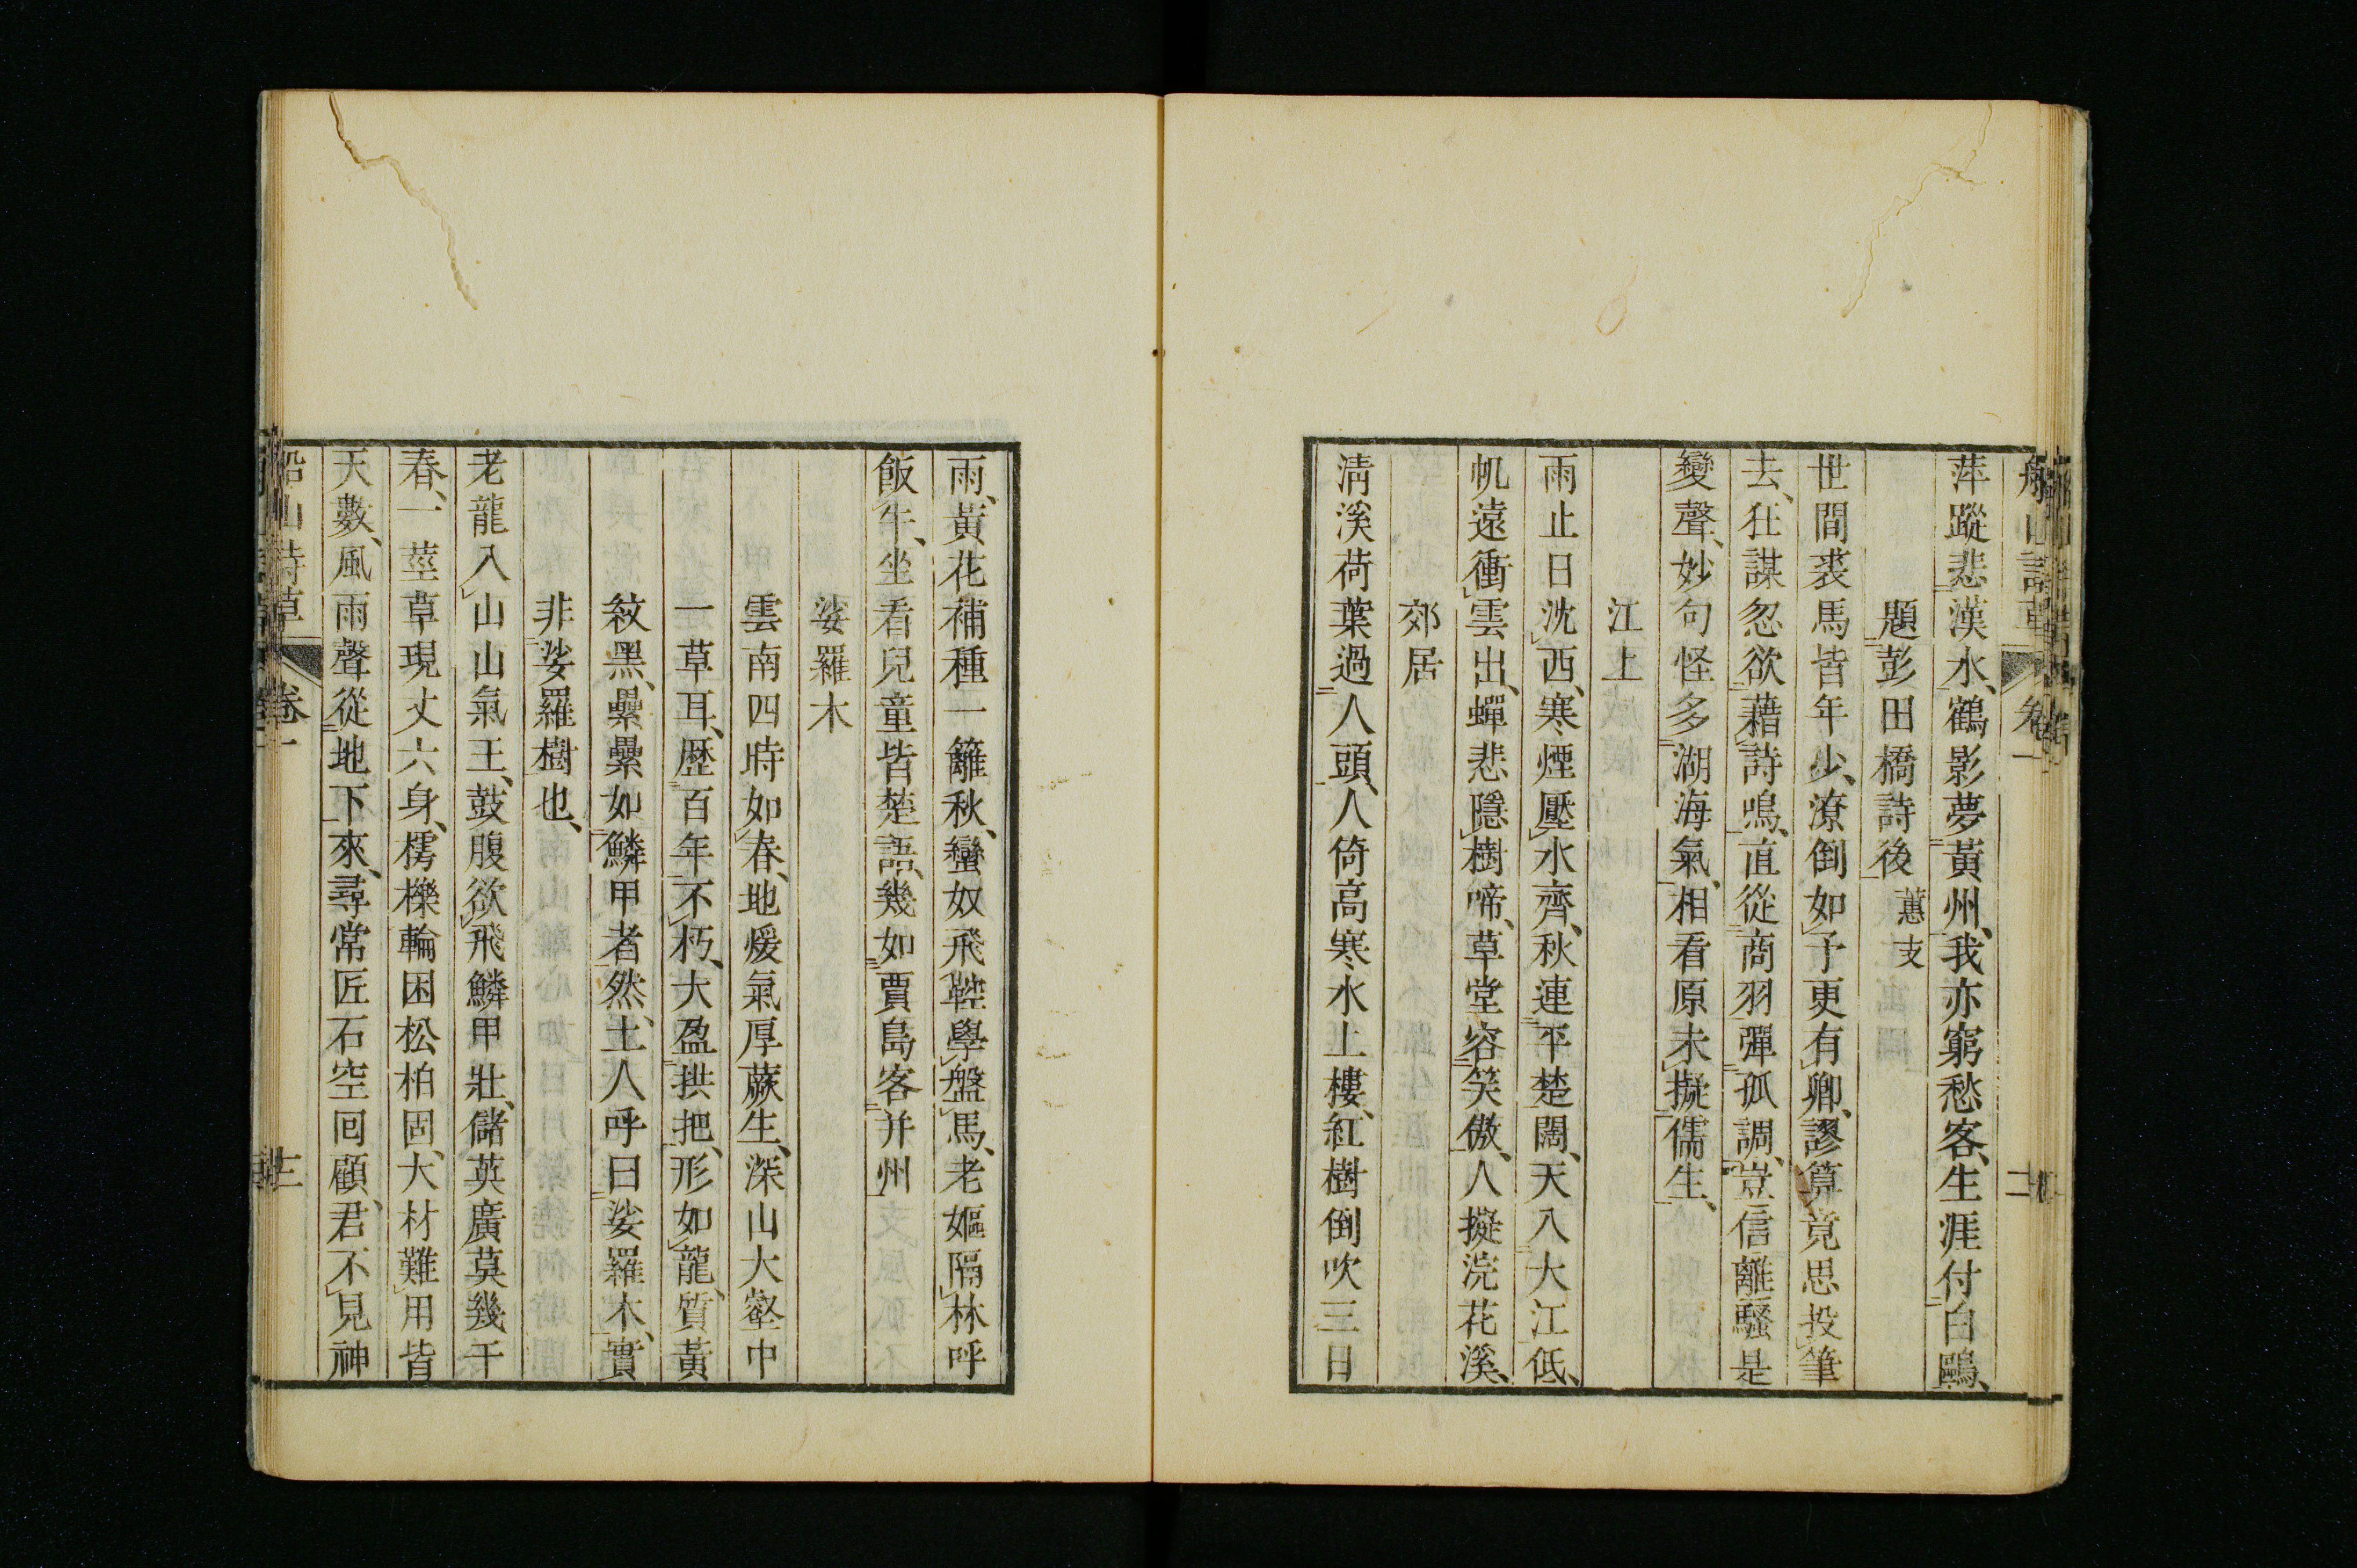 船山詩草 卷一 二
萍蹤悲漢水、鶴影夢黃州、我亦窮愁客、生涯付白鷗、
題彭田橋詩後 蕙支
世間裘馬皆年少、潦倒如予更有卿、謬算竟思投筆
去、狂謀忽欲藉詩鳴、直從商羽彈孤調、豈信離騷是
變聲、妙句怪多湖海氣、相看原未擬儒生、
江上
雨止日沈西、寒煙壓水齊、秋連平楚闊、天入大江低、
帆遠衝雲出、蟬悲隱樹啼、草堂容笑傲、人擬浣花溪、
郊居
淸溪荷葉過人頭、人倚高寒水上樓、紅樹倒吹三日
雨、黃花補種一籬秋、蠻奴飛鞚學盤馬、老嫗隔林呼
飯牛、坐看兒童皆楚語、幾如賈島客并州
娑羅木
雲南四時如春、地煖氣厚蕨生、深山大壑中
一草耳、歷百年不朽、大盈拱把、形如龍、質黃
紋黑、纍纍如鱗甲者然、土人呼曰娑羅木、實
非娑羅樹也、
老龍入山山氣王、鼓腹欲飛鱗甲壯、儲英廣莫幾千
春、一莖草現丈六身、樗櫟輪囷松柏固、大材難用皆
天數、風雨聲從地下來、尋常匠石空回顧、君不見神
船山詩草 卷一 三